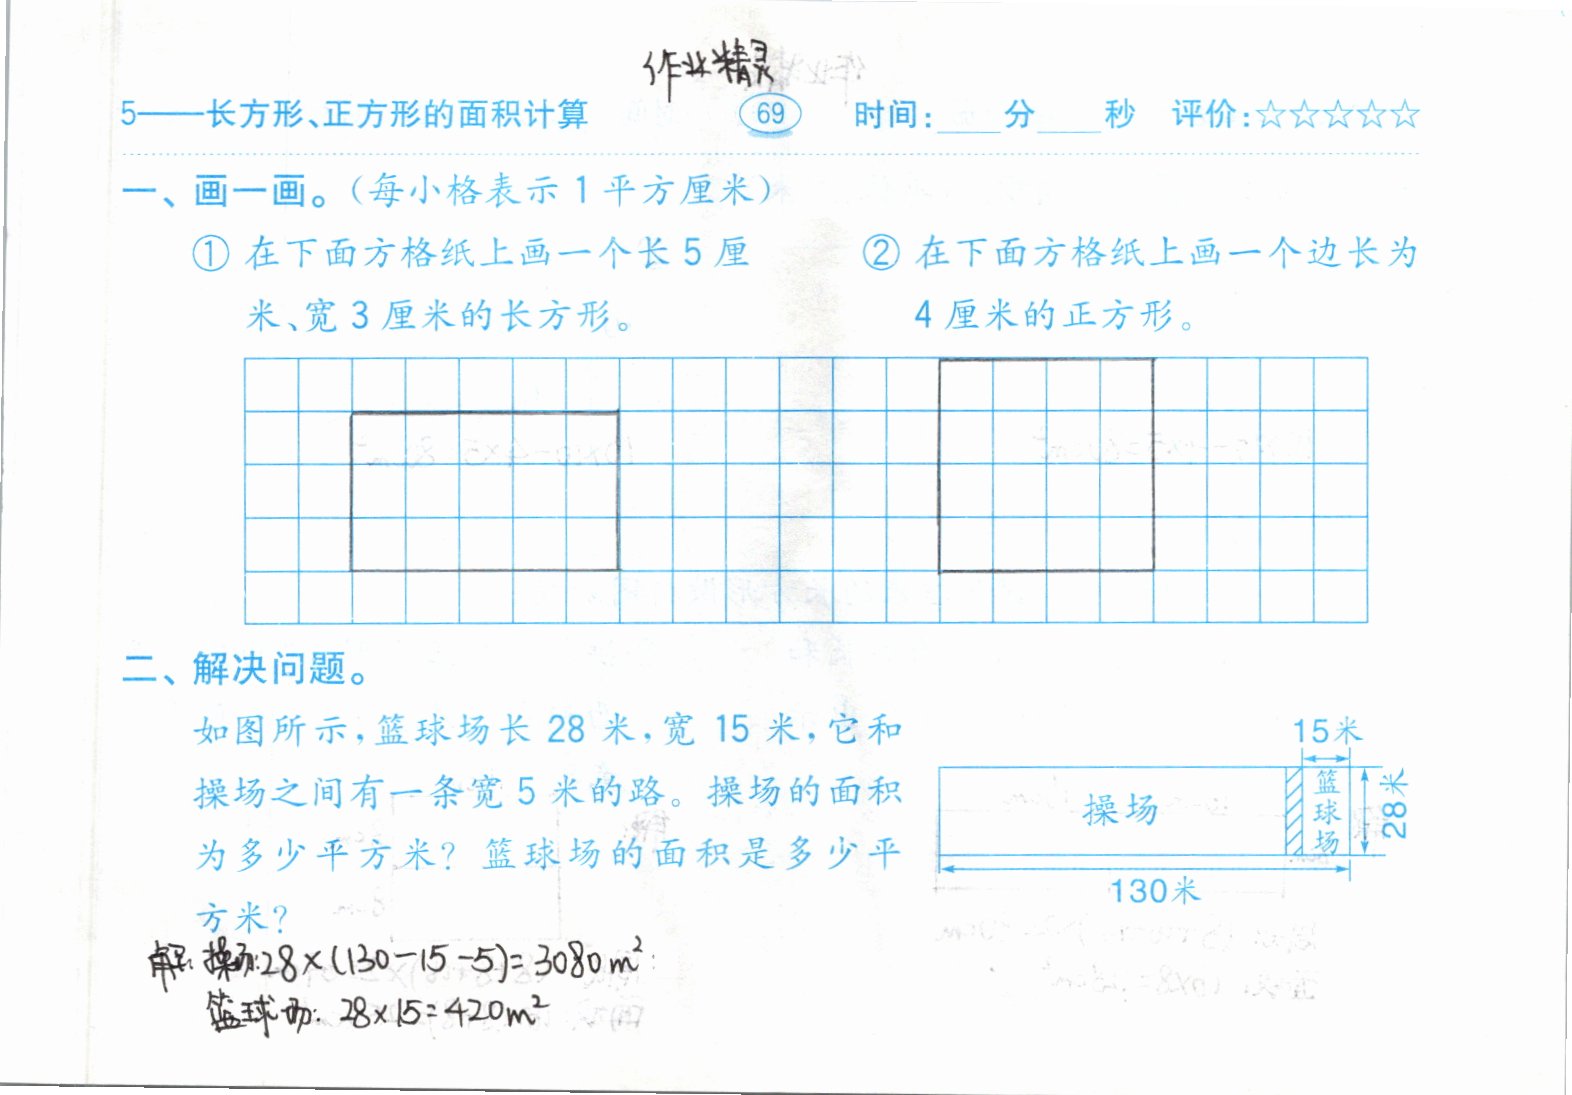 作业精灵
5——长方形、正方形的面积计算 69 时间:____分____秒 评价:☆☆☆☆☆
一、画一画。(每小格表示 1 平方厘米)
① 在下面方格纸上画一个长 5 厘
米、宽 3 厘米的长方形。
② 在下面方格纸上画一个边长为
4 厘米的正方形。
二、解决问题。
如图所示,篮球场长 28 米,宽 15 米,它和
操场之间有一条宽 5 米的路。操场的面积
为多少平方米? 篮球场的面积是多少平
方米?
15米
操场
篮球场
28米
130米
解: 操场:28×(130-15-5)=3080m²
篮球场: 28×15=420m²